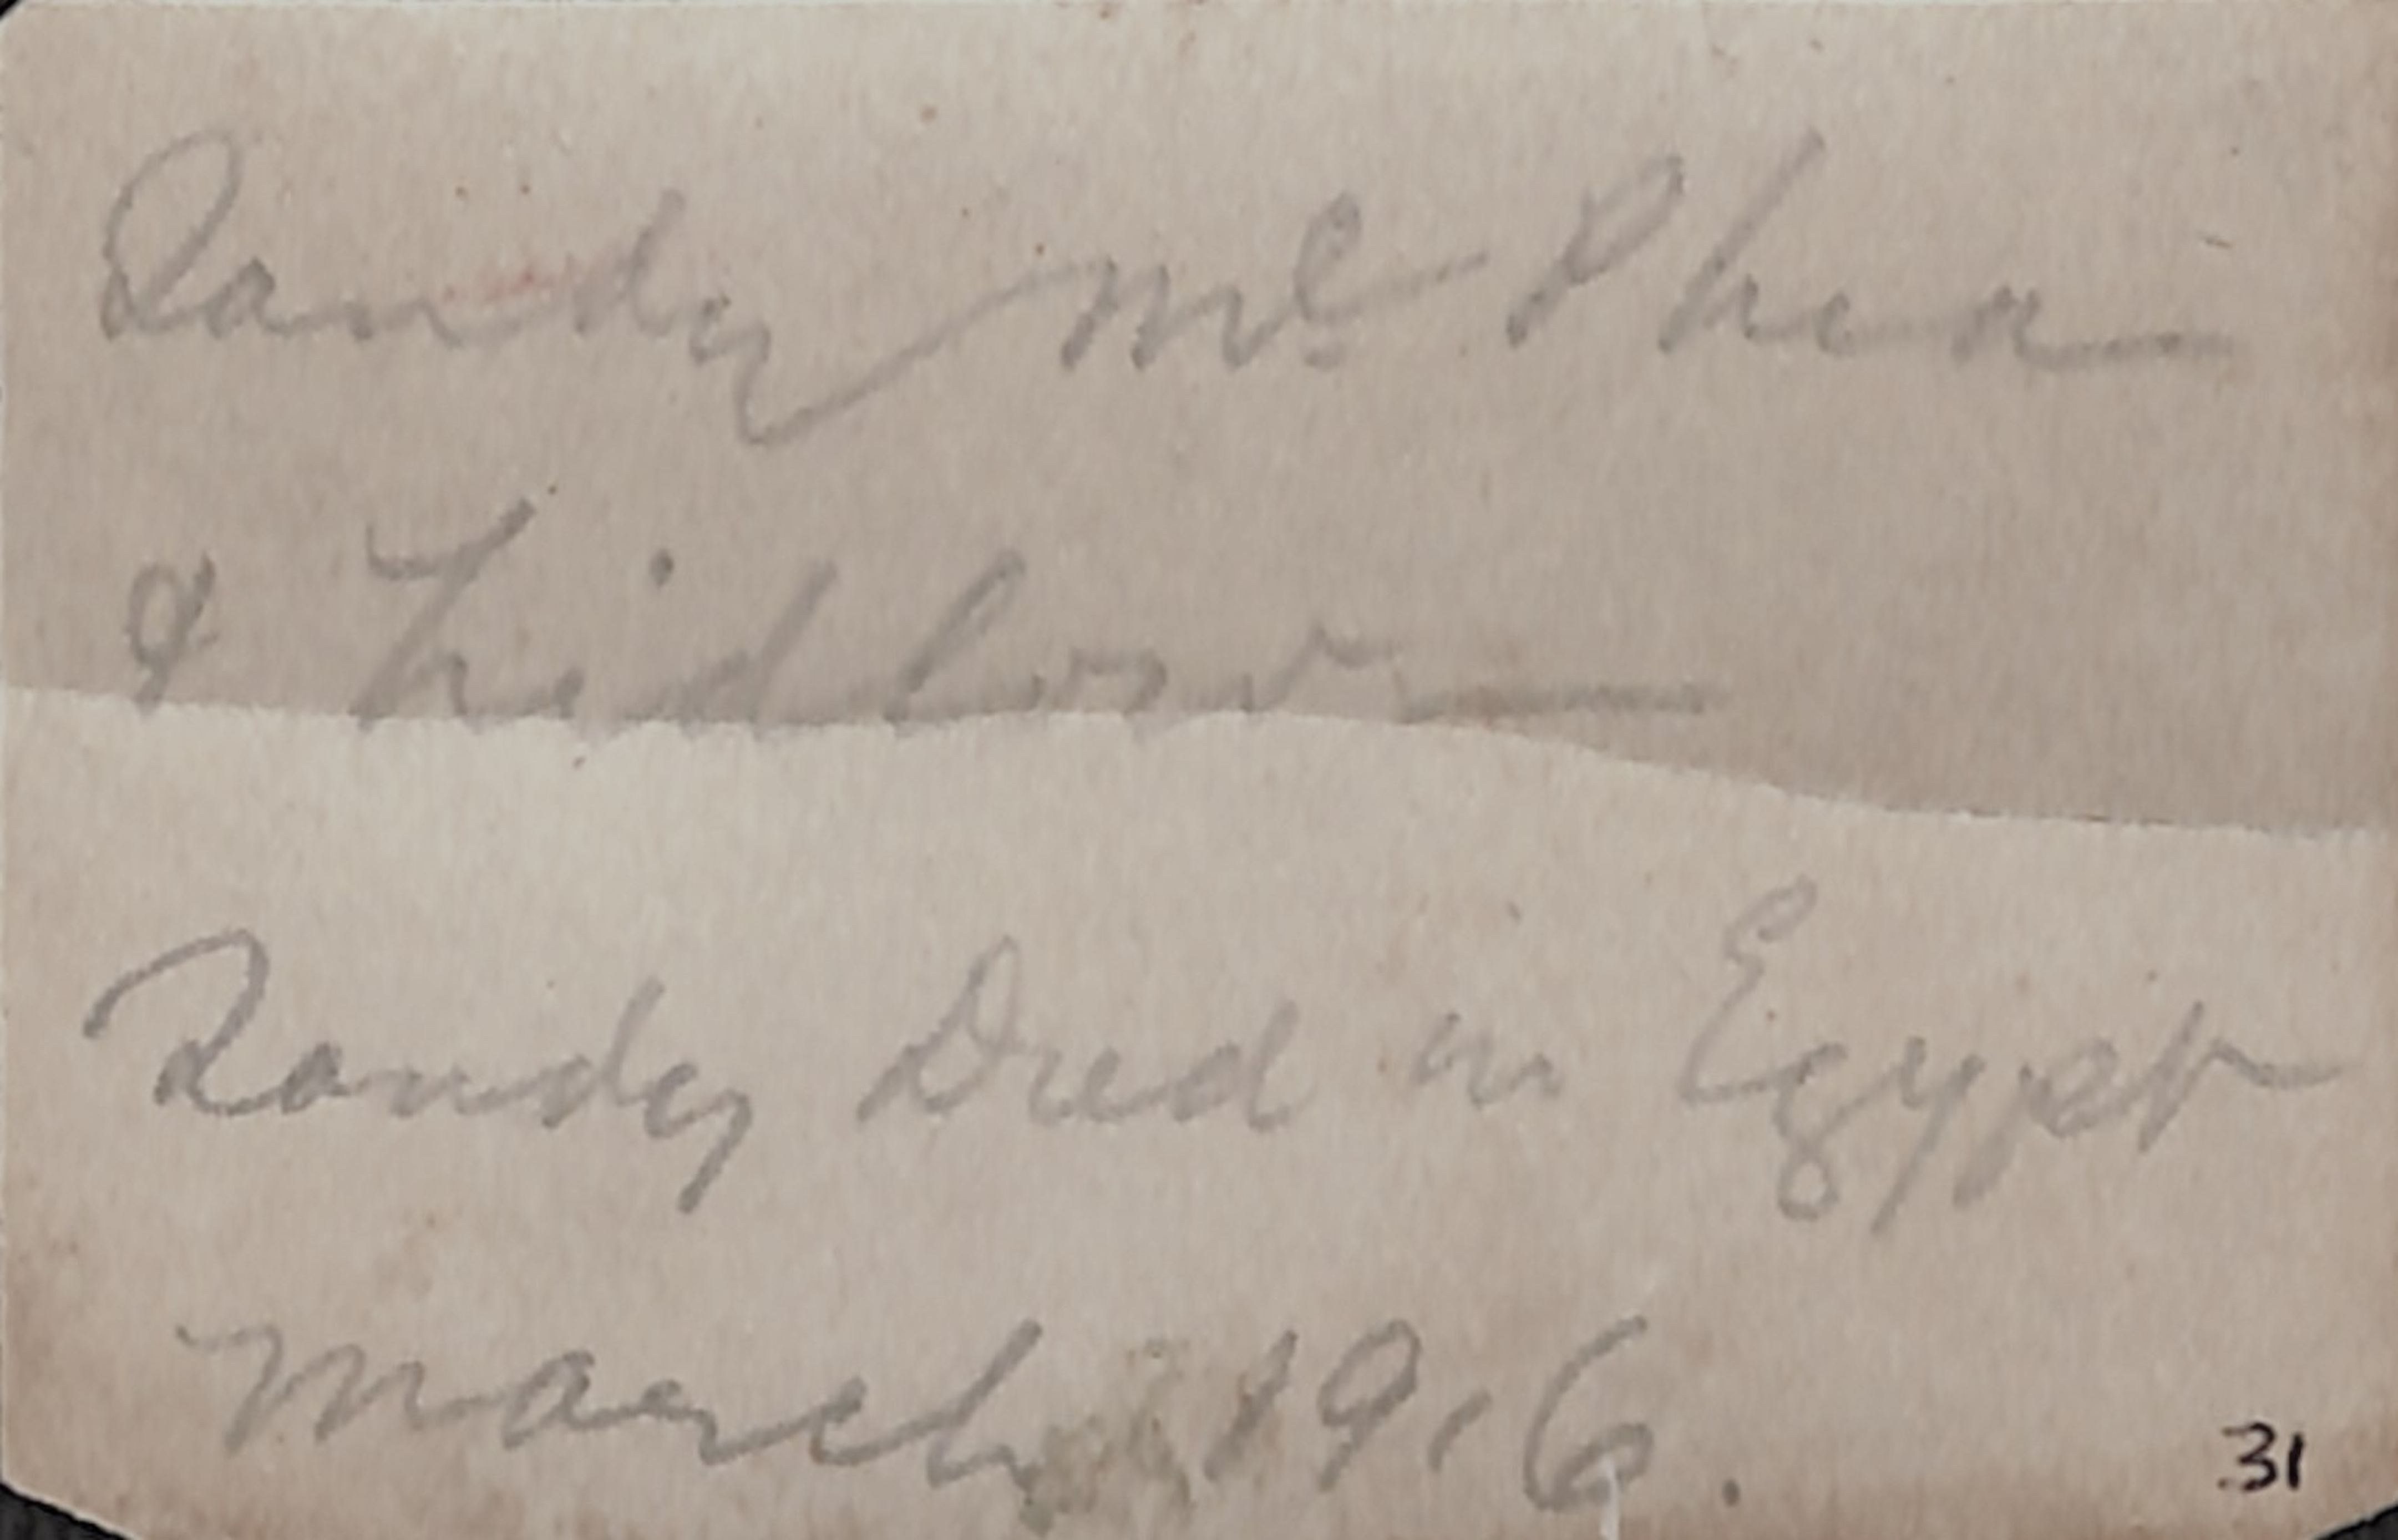 Sandy Mc Phea
&
Sandy Died in Egypt
March 1916.
31